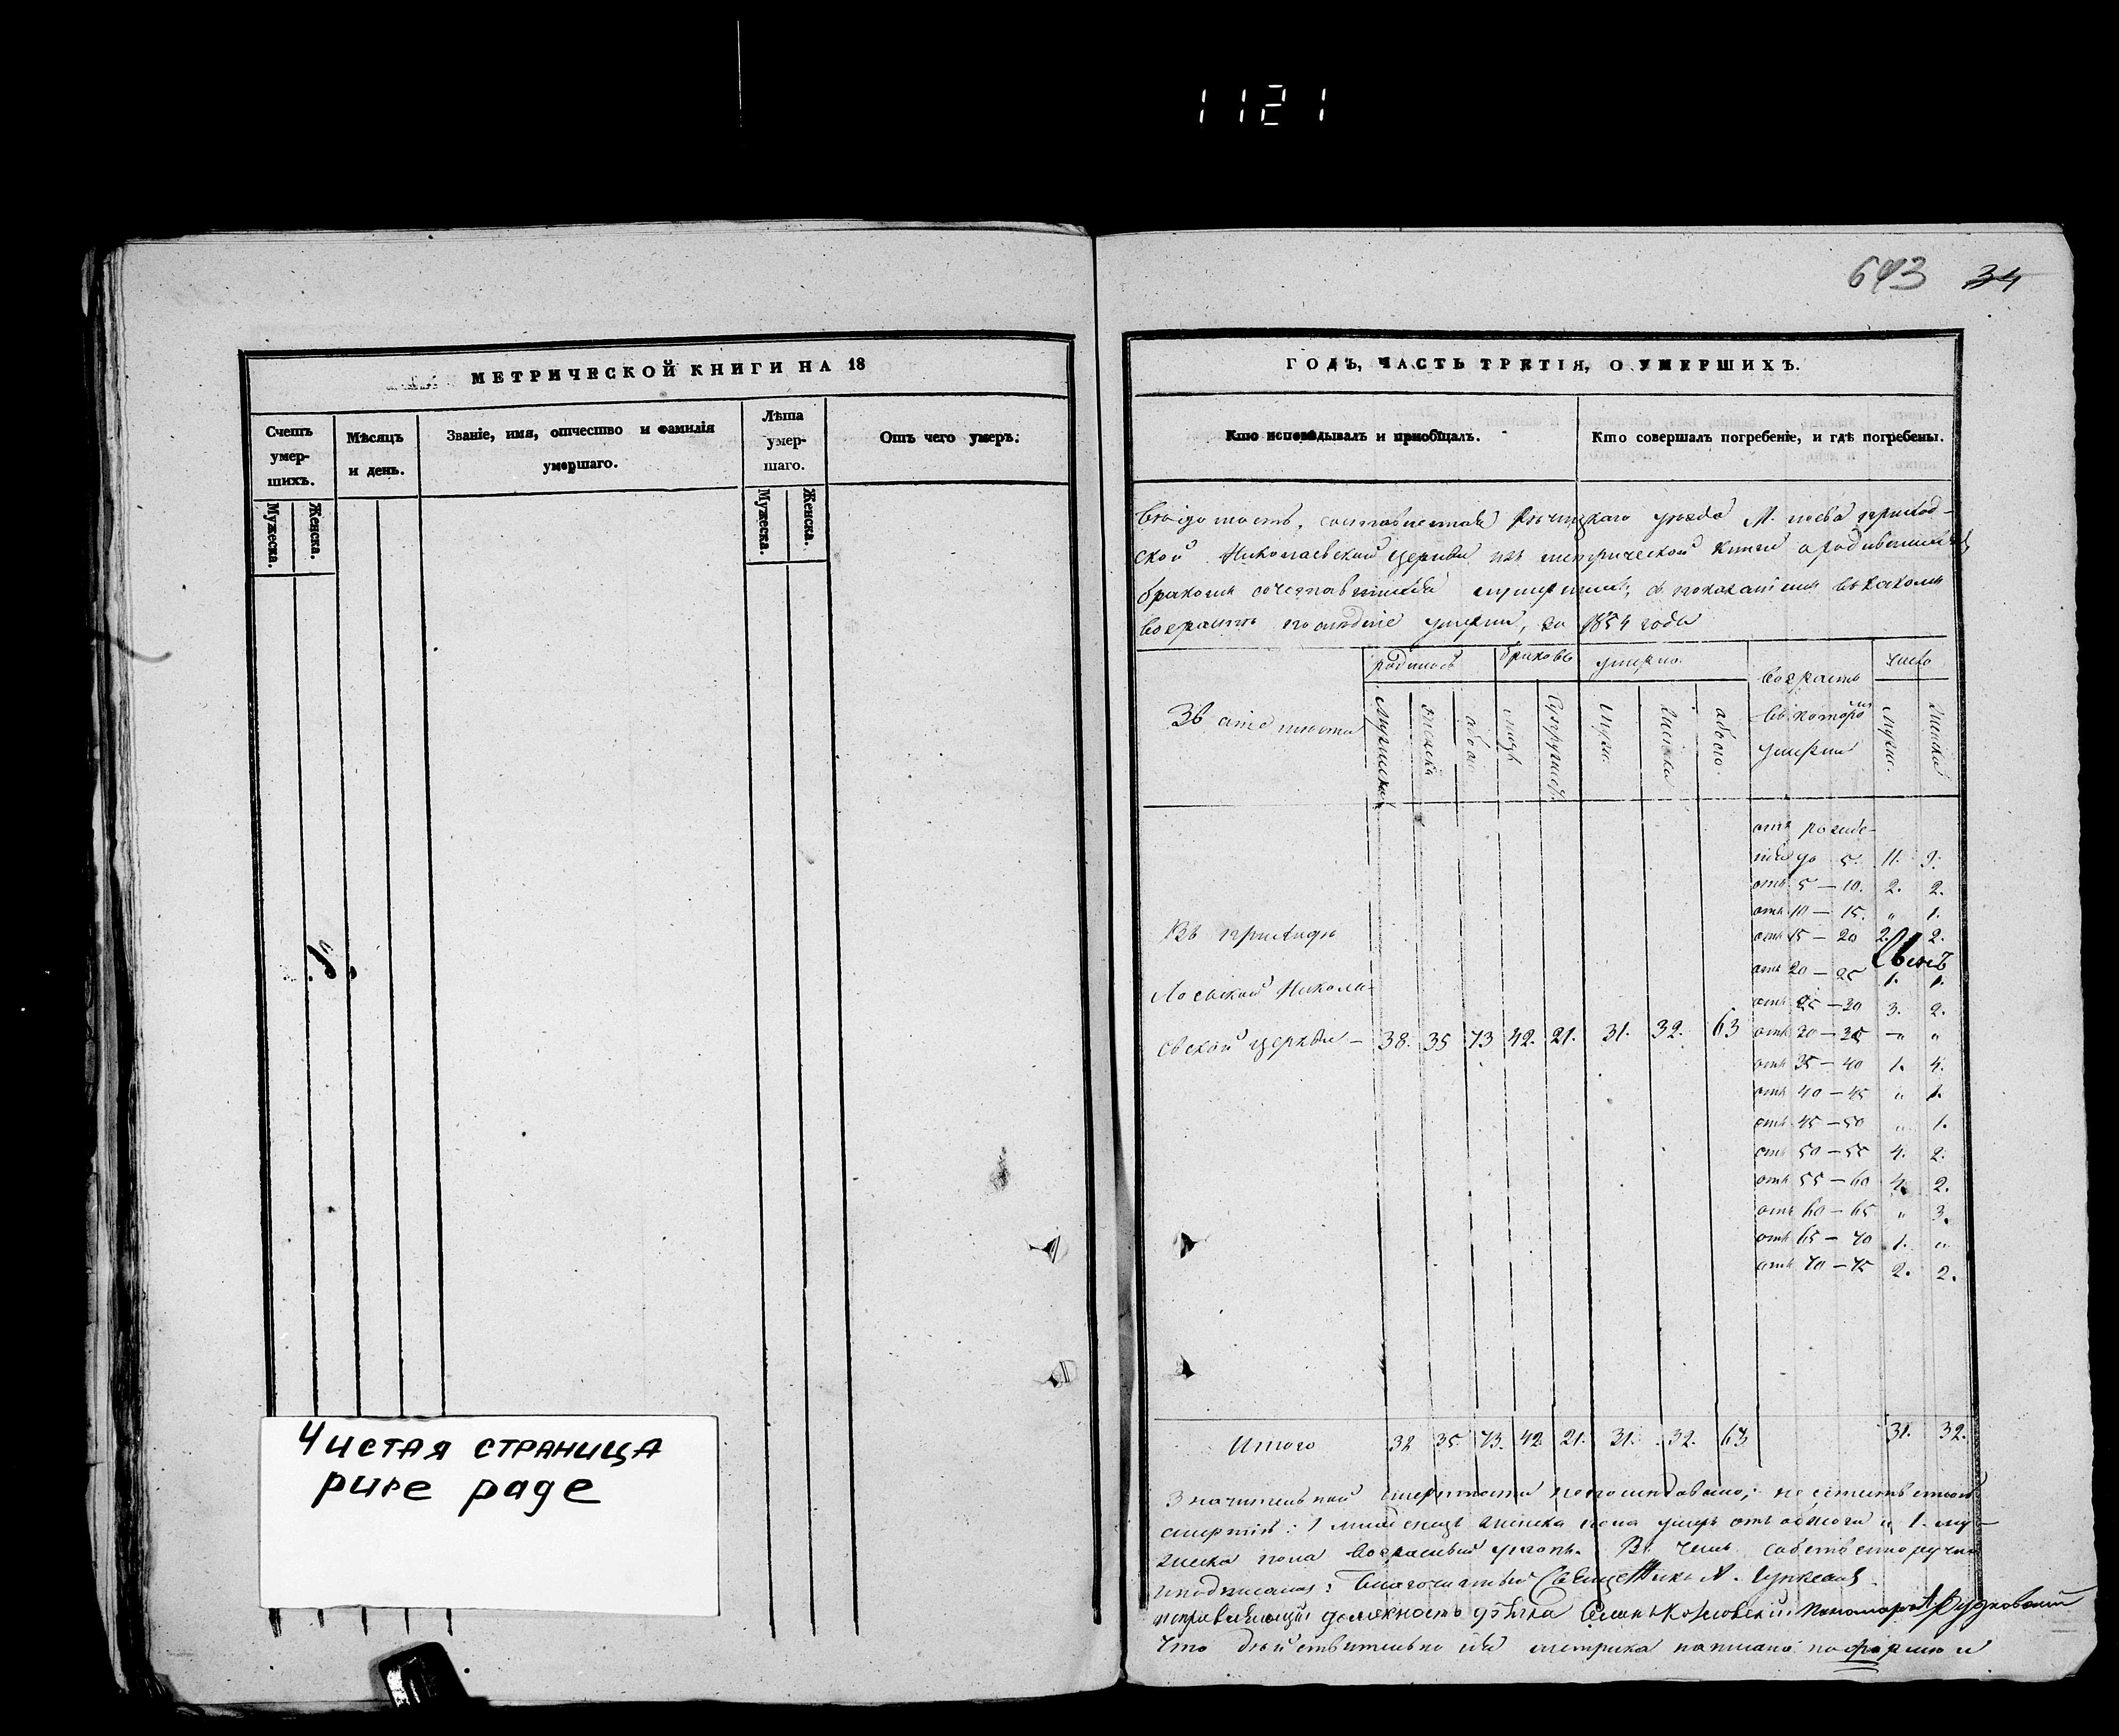 1121
643 34
МЕТРИЧЕСКОЙ КНИГИ НА 18
Счетъ умершихъ.
Мужеска.
Женска.
Мѣсяцъ и день.
Званіе, имя, отчество и фамилія умершаго.
Лѣта умершаго.
Мужеска.
Женска.
Отъ чего умеръ.
Чистая страница
pure page
ГОДЪ, ЧАСТЬ ТРЕТІЯ, О УМЕРШИХЪ.
Кто исповѣдывалъ и пріобщалъ.
Кто совершалъ погребеніе, и гдѣ погребены.
Вѣдомость, составленная Рѣчицкаго уѣзда М. Лоева приход-
ской Николаевской церкви изъ метрической книги о родившихся
бракомъ сочетавшихся и умершихъ, съ показаніемъ въ какомъ
возрастѣ последніе умерли, за 1854 годъ
родилось
браковъ
умерло.
возрастъ въ которомъ умерли
число
мужеска
женска
обоего
супружес.
мужес.
женска
обоего.
мужес.
женска
отъ рожде-
нія до 5. 11. 9.
отъ 5 — 10. 2. 2.
отъ 10 — 15. „ 1.
Въ приходѣ
отъ 15 — 20 2. 2.
отъ 20 — 25 1. 1.
Лоевской Никола-
отъ 25 — 30 3. 2.
евской церкви — 38. 35 73 42. 21. 31. 32. 63 отъ 30 — 35 „ „
отъ 35 — 40 1. 4.
отъ 40 — 45 „ 1.
отъ 45 — 50 „ 1.
отъ 50 — 55 4. 2.
отъ 55 — 60 4. 2.
отъ 60 — 65 „ 3.
отъ 65 — 70 1. „
отъ 70 — 75 2. 2.
Итого 38 35. 73. 42 21. 31. 32. 63 31. 32.
Значительной смертности не послѣдовало;
смертію: 1 младенецъ женска пола умеръ отъ обжоги и 1. му-
жеска пола возраслый утопъ. Въ чемъ собственноручно
и подписались: Благочинный Священникъ А.
исправляющій должность дьячка Пономарь А Рудковскій
Что дѣйствительно сія метрика написана по формѣ и